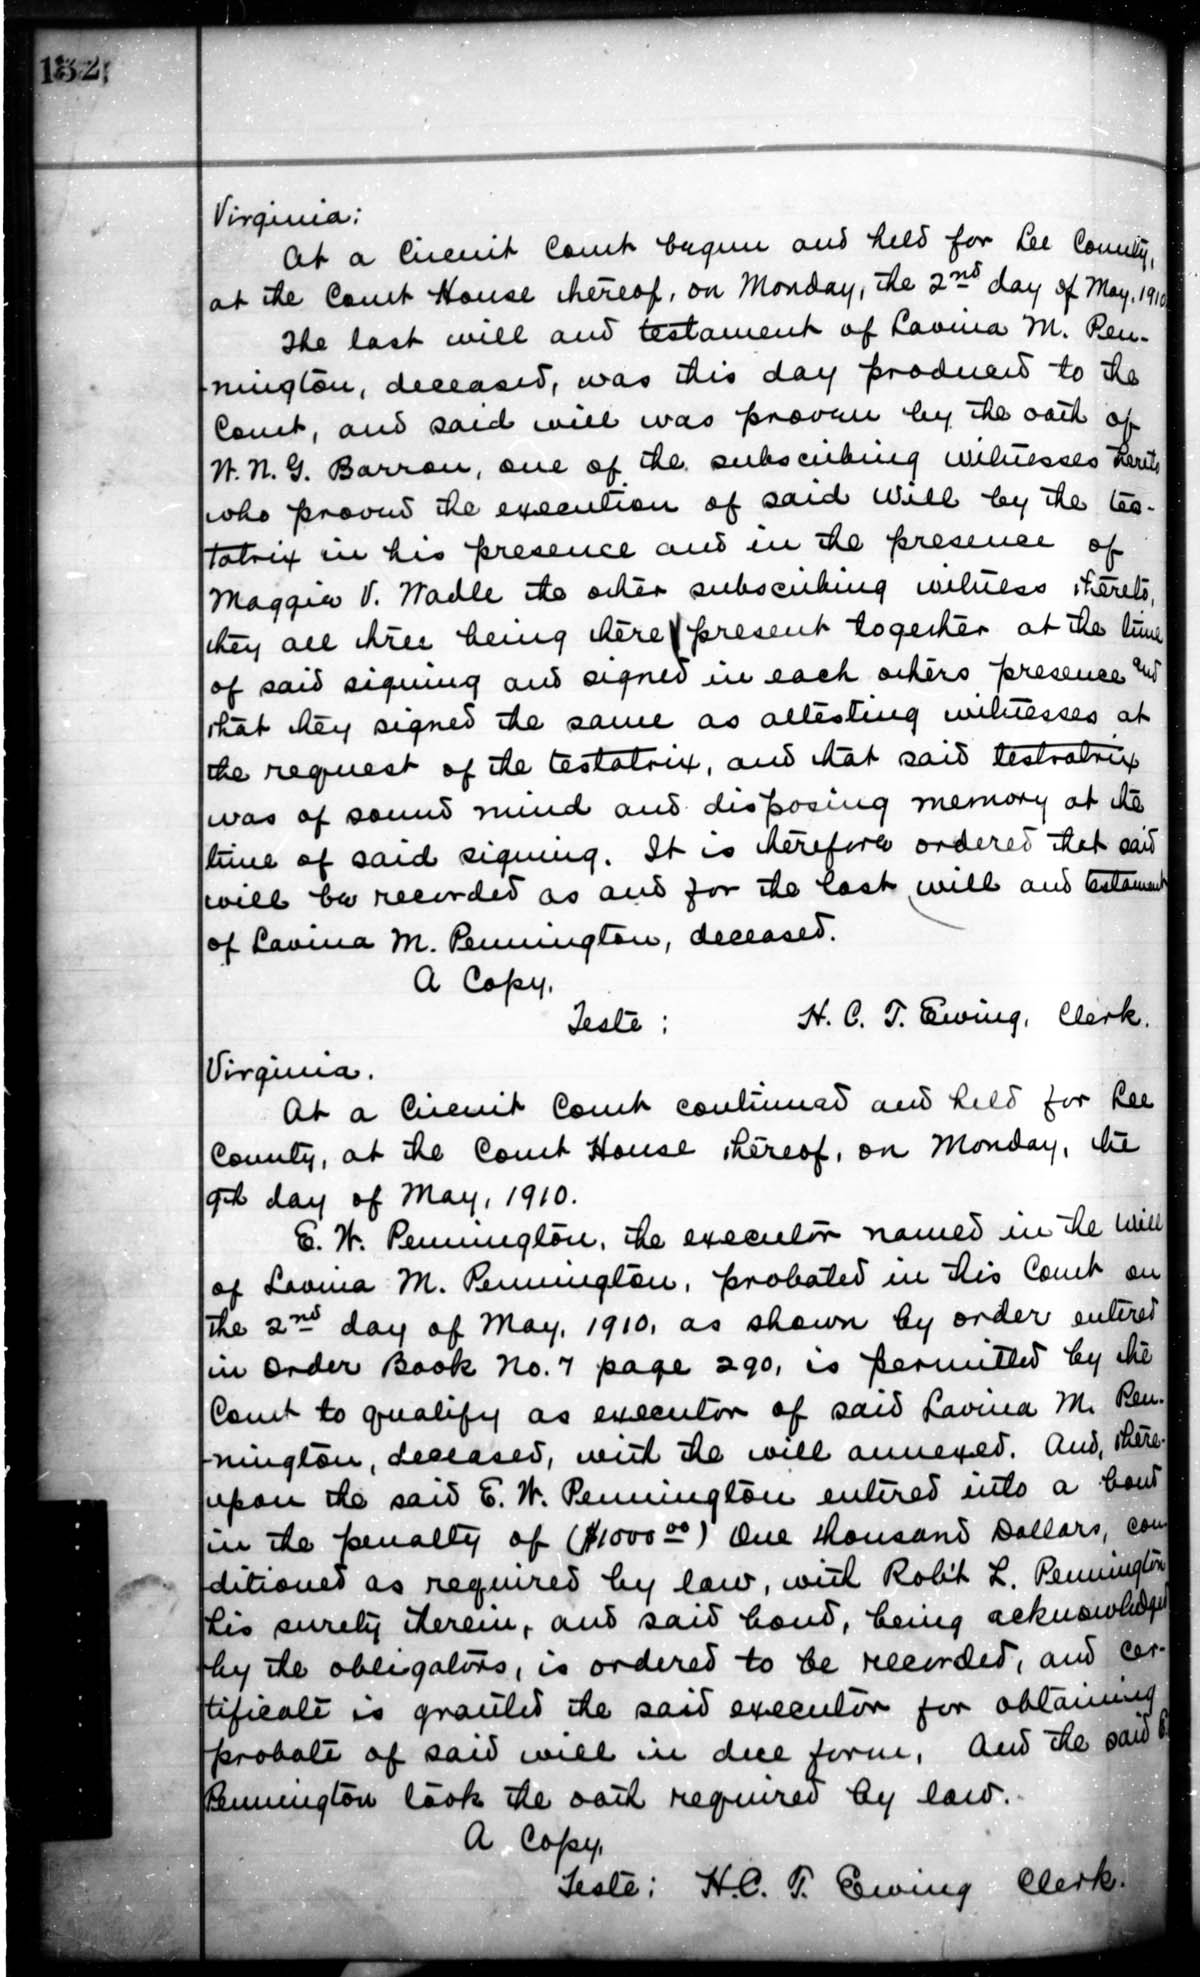 152
Virginia:
At a Circuit Court begun and held for Lee County,
at the Court House thereof, on Monday, the 2nd day of May, 1910
The last will and testament of Lavina M. Pen-
-nington, deceased, was this day produced to the
Court, and said will was proven by the oath of
W. N. G. Barron, one of the subscribing witnesses hereto
who proved the execution of said Will by the tes-
tatrix in his presence and in the presence of
Maggie V. Wadle the other subscribing witness thereto,
they all three being there present together at the time
of said signing and signed in each others presence and
that they signed the same as attesting witnesses at
the request of the testatrix, and that said testratrix
was of sound mind and disposing memory at the
time of said signing. It is therefore ordered that said
will be recorded as and for the last will and testament
of Lavina M. Pennington, deceased.
A Copy.
Teste: H. C. T. Ewing, Clerk.
Virginia.
At a Circuit Court continued and held for Lee
County, at the Court House thereof, on Monday, the
9th day of May, 1910.
E. W. Pennington, the executor named in the will
of Lavina M. Pennington, probated in this Court on
the 2nd day of May, 1910, as shown by order entered
in Order Book No. 7 page 290, is permitted by the
Court to qualify as executor of said Lavina M. Pen-
-nington, deceased, with the will annexed. And, there-
upon the said E. W. Pennington entered into a bond
in the penalty of ($1000 00) One thousand Dollars, con
ditioned as required by law, with Robt L. Pennington
his surety therein, and said bond, being acknowledged
by the obligators, is ordered to be recorded, and cer-
tificate is granted the said executor for obtaining
probate of said will in due form, And the said E.
Pennington took the oath required by law.
A Copy,
Teste: H. C. T. Ewing Clerk.